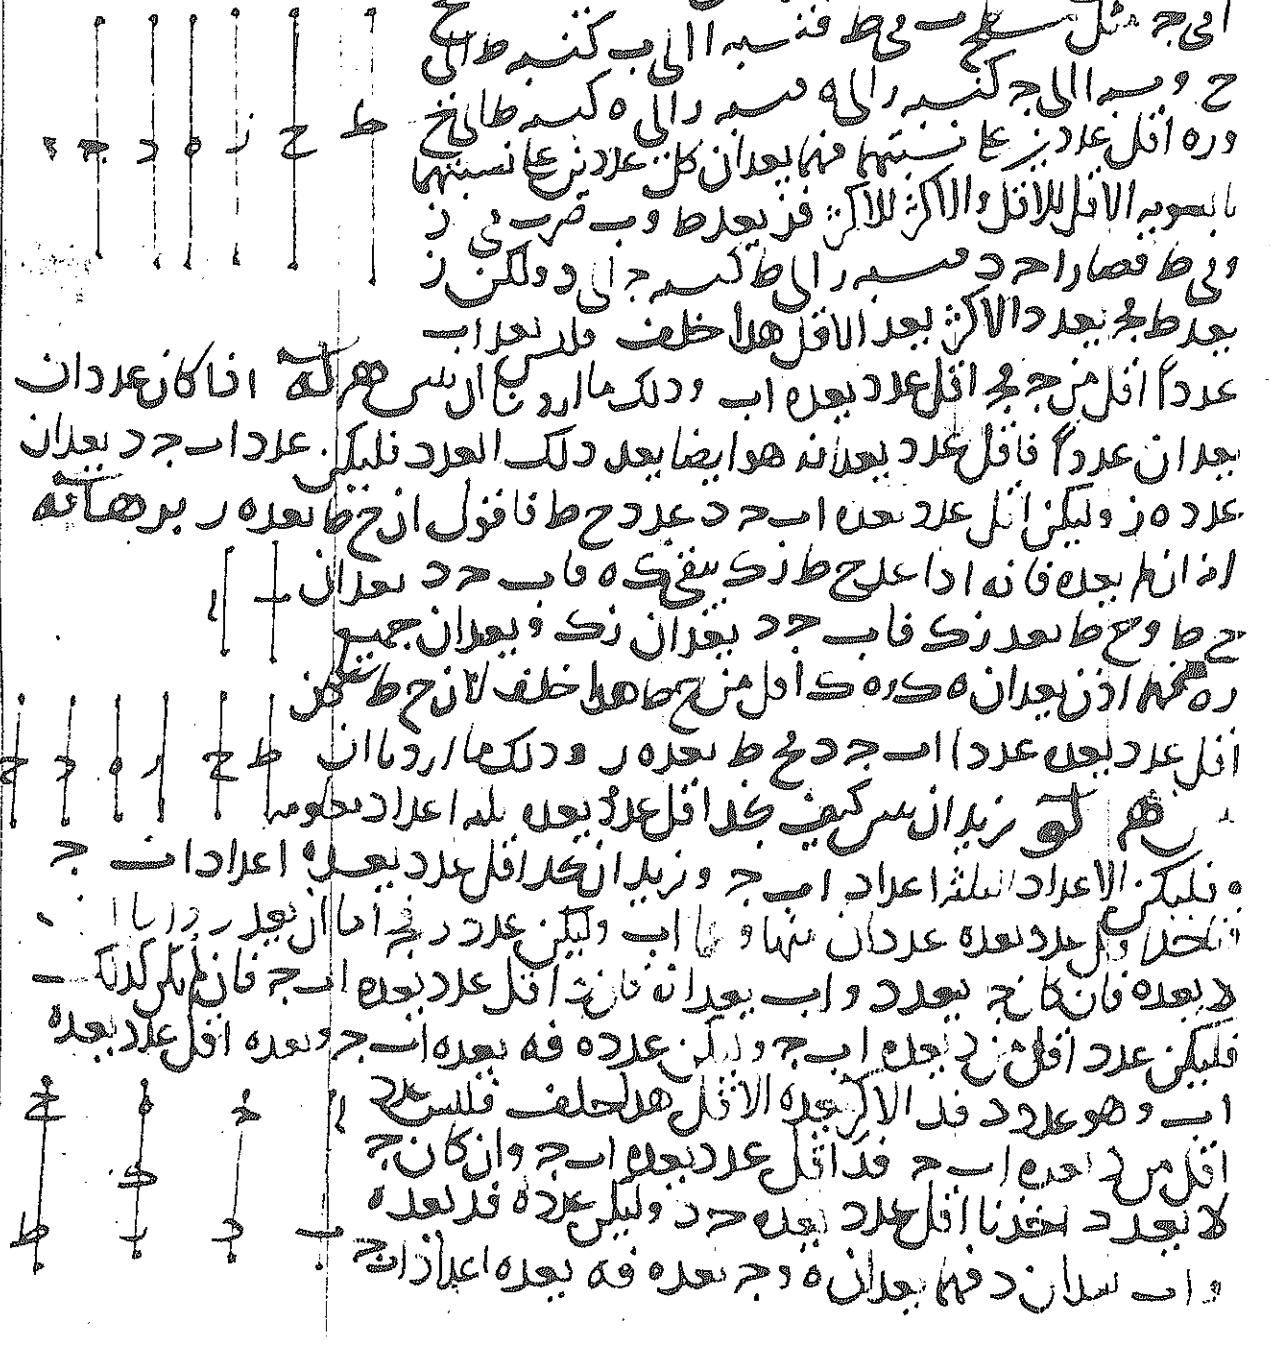 ا في ج مثل مسطح ب في ط فنسبه ا الى ب كنسبه ط الى
ح ونسبه ا الى ج كنسبه ر الى ه فنسبه ر الى ه كنسبه ط الى ح
و ر ه اقل عددين على نسبتهما فهما يعدان كل عددين على نسبتهما
بالسويه الاقل للاقل والاكثر للاكثر فز يعد ط و ب ضرب في ز
وفي ط فصارا ج د فنسبه ر الى ط كنسبه ج الى د ولكن ز
يعد ط فج يعد د الاكثر يعد الاقل هذا خلف فليس يعد ا ب
عددا اقل من ج فج اقل عدد يعده ا ب وذلك ما اردنا ان نبين له اذا كان عددان
يعدان عددا فاقل عدد يعدانه هو ايضا يعد ذلك العدد فليكن عدد ا ب ج د يعدان
عدد ه ز وليكن اقل عدد يعده ا ب ج د عدد ح ط فاقول ان ح ط يعد ه ر برهانه
انه ان لم يعده فانه اذا عد ح ط ز ك يبقى ك ه فا ب ج د يعدان
ح ط و ح ط يعد ز ك فا ب ج د يعدان ز ك ويعدان جميع
ر ه فهما اذن يعدان ه ك و ه ك اقل من ح ط هذا خلف لان ح ط
اقل عدد يعده عددا ا ب ج د فح ط يعد ه ر وذلك ما اردنا ان
لو نريد ان نبين كيف نجد اقل عدد يعده ثلثه اعداد معلومه
فليكن الاعداد الثلثه اعداد ا ب ج ونريد ان نجد اقل عدد يعده اعداد ا ب ج
فناخذ اقل عدد يعده عددان منها وهما ا ب وليكن عدد د فج اما ان يعد د واما ان
لا يعده فان كان ج يعد د و ا ب يعدانه فان د اقل عدد يعده ا ب ج فان لم يكن كذلك
فليكن عدد اقل من د يعده ا ب ج وليكن عدد ه فه يعده ا ب ج ويعده اقل عدد يعده
ا ب وهو عدد د فد الاكثر يعد ه الاقل هذا خلف فليس عدد
اقل من د يعده ا ب ج فد اقل عدد يعده ا ب ج وان كان ج
لا يعد د اخذنا اقل عدد يعده ج د وليكن عدد ه فد يعد ه
و ا ب يعدان د فهما يعدان ه و ج يعد ه فه يعده اعداد ا ب ج